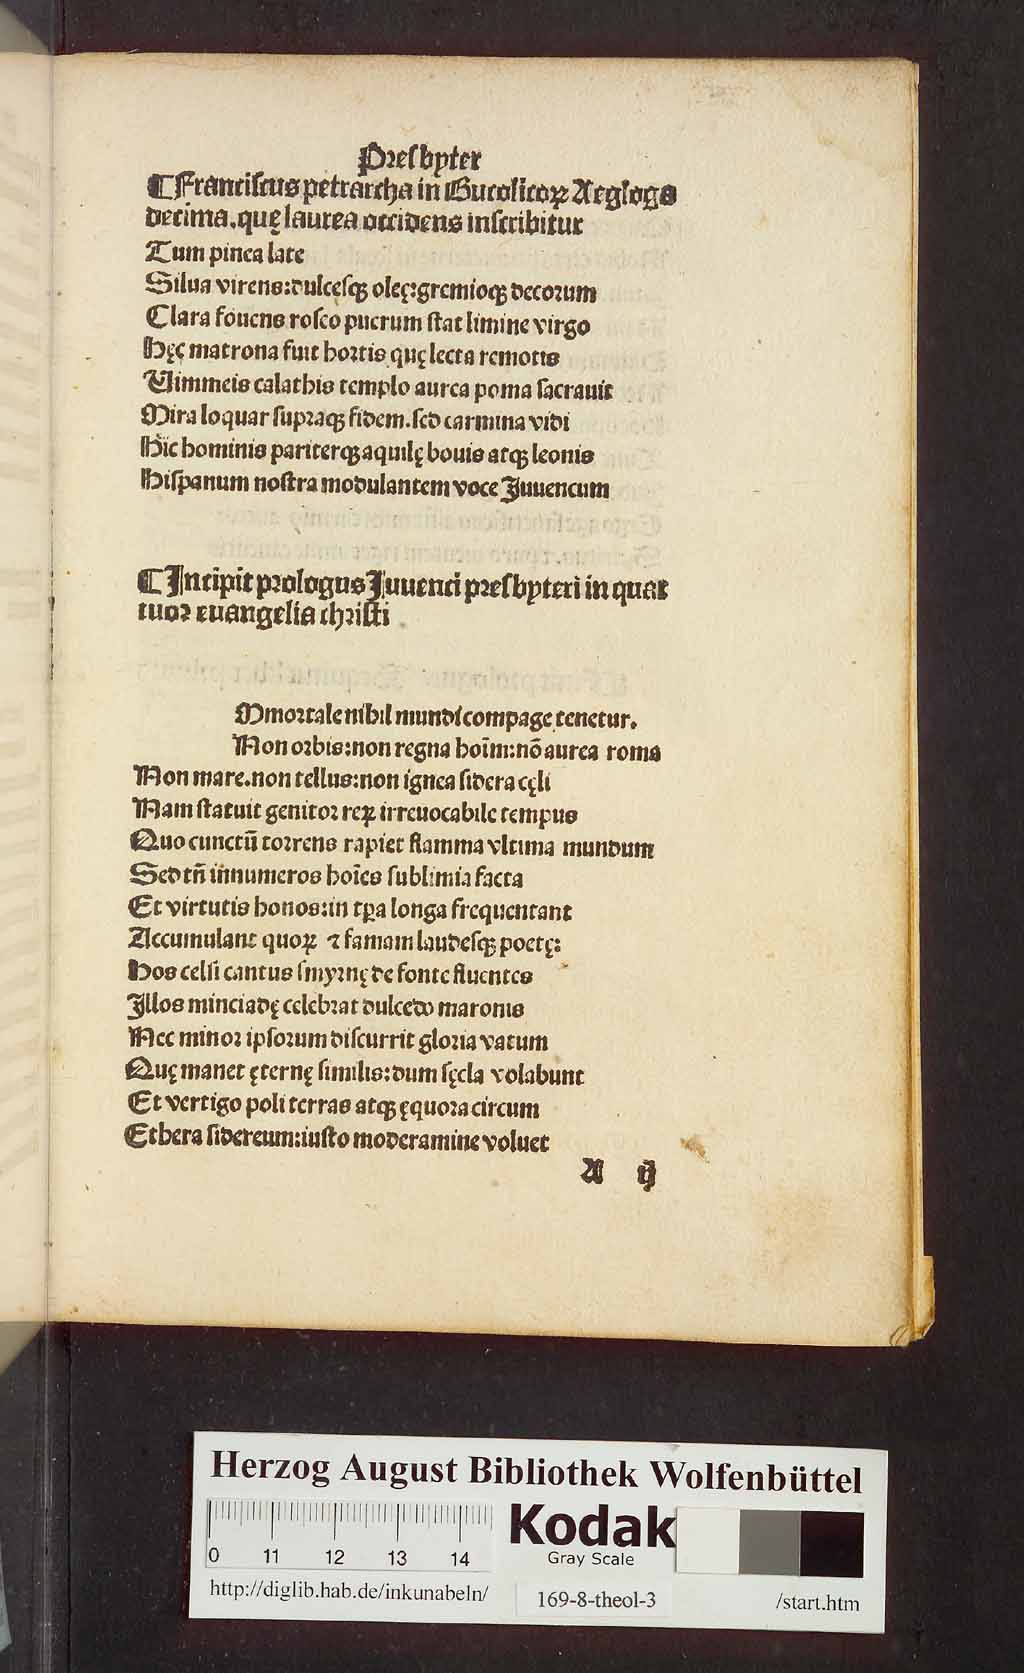 Presbyter
⸿ Franciscus petrarcha in Bucolicoꝝ Aegloga
decima. quę laurea occidens inscribitur
Tum pinea late
Silua virens: dulcesqꝫ oleę: gremioqꝫ decorum
Clara fouens roseo puerum stat limine virgo
Hęc matrona fuit hortis quę lecta remotis
Vimineis calathis templo aurea poma sacrauit
Mira loquar supraqꝫ fidem. sed carmina vidi
Hic hominis pariterqꝫ aquilę bouis atqꝫ leonis
Hispanum nostra modulantem voce Juuencum
⸿ Incipit prologus Juuenci presbyteri in quat
tuor euangelia christi
Mmortale nihil mundi compage tenetur.
Non orbis: non regna hoīm: nō aurea roma
Non mare. non tellus: non ignea sidera cęli
Nam statuit genitor reꝝ irreuocabile tempus
Quo cunctū torrens rapiet flamma vltima mundum
Sed tñ innumeros hoīes sublimia facta
Et virtutis honos: in tꝑa longa frequentant
Accumulant quoꝝ ⁊ famam laudesqꝫ poetę:
Hos celsi cantus smyrnę de fonte fluentes
Illos minciadę celebrat dulcedo maronis
Nec minor ipsorum discurrit gloria vatum
Quę manet ęternę similis: dum sęcla volabunt
Et vertigo poli terras atqꝫ ęquora circum
Ethera sidereum: iusto moderamine voluet
A ij
Herzog August Bibliothek Wolfenbüttel
0 11 12 13 14
Kodak
Gray Scale
http://diglib.hab.de/inkunabeln/ 169-8-theol-3 /start.htm